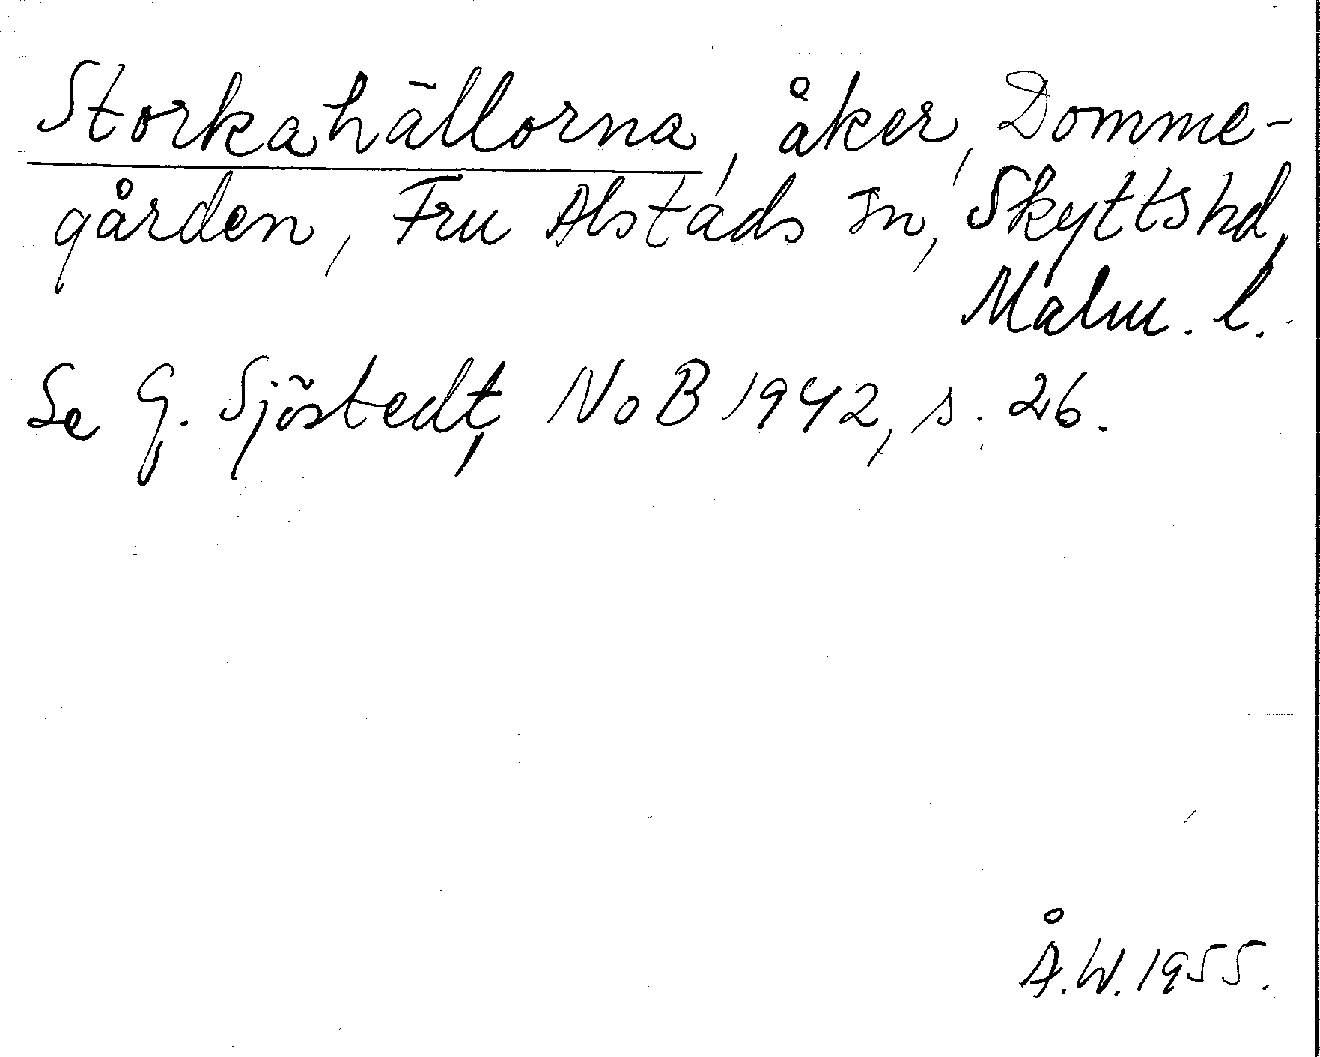 Storkahällorna, åker, Domme-
gården, Fru Alstads sn, Skytts hd,
Malm. l.
Se G. Sjöstedt, NoB 1942, s. 26.
Å.W. 1955.